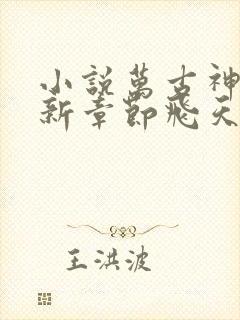 小説萬古神
新章節飛天
王洪波